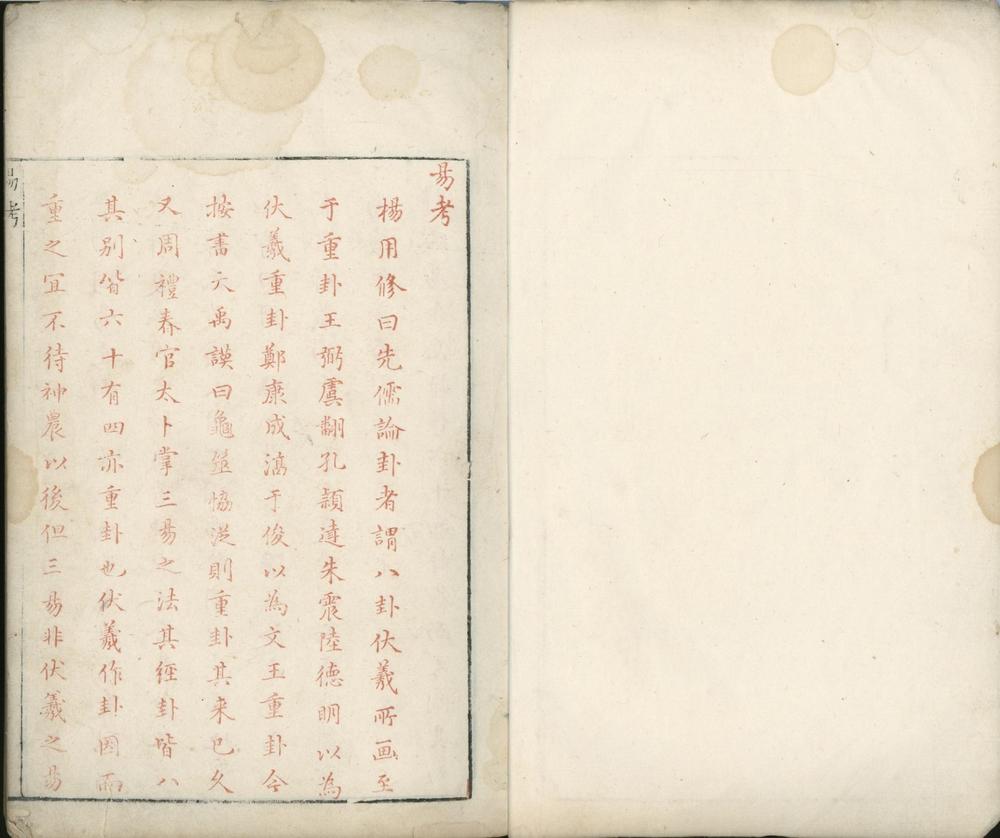 易考
楊用修曰先儒論卦者謂八卦伏羲所画至
于重卦王弼虞翻孔頴達朱震陸德明以為
伏羲重卦鄭康成淳于俊以為文王重卦今
按書大禹謨曰龜筮恊從則重卦其来已久
又周禮春官太卜掌三易之法其經卦皆八
其别皆六十有四亦重卦也伏羲作卦因而
重之冝不待神農以後但三易非伏羲之易
易考